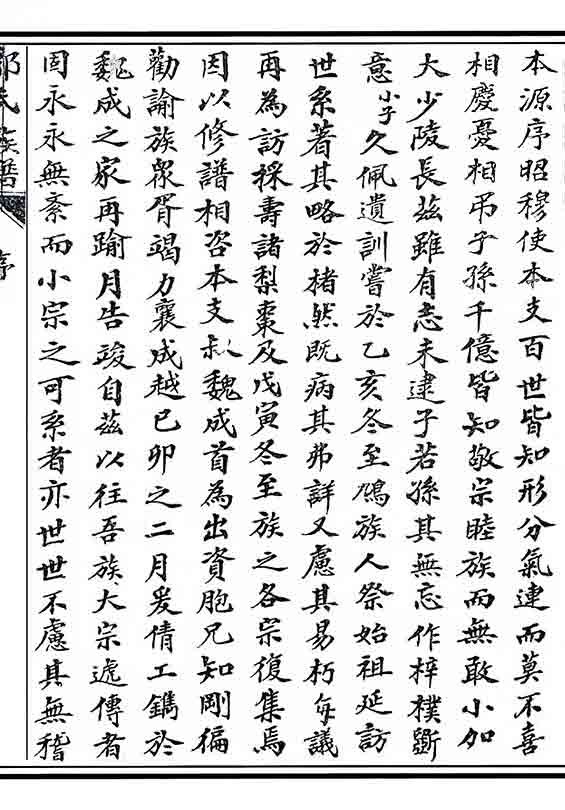 本源序昭穆使本支百世皆知形分氣連而莫不喜
相慶憂相弔子孫千億皆知敬宗睦族而無敢小加
大少陵長茲雖有志未逮子若孫其無忘作梓樸斲
意小子久佩遺訓嘗於乙亥冬至鳩族人祭始祖延訪
世系著其略於楮然既病其弗詳又慮其易朽每議
再為訪採壽諸梨棗及戊寅冬至族之各宗復集焉
因以修譜相咨本支叔魏成首為出資胞兄知剛徧
勸諭族眾胥竭力襄成越己卯之二月爰倩工鐫於
魏成之家再踰月告竣自茲以往吾族大宗遞傳者
固永永無紊而小宗之可系者亦世世不慮其無稽
氏族譜
序